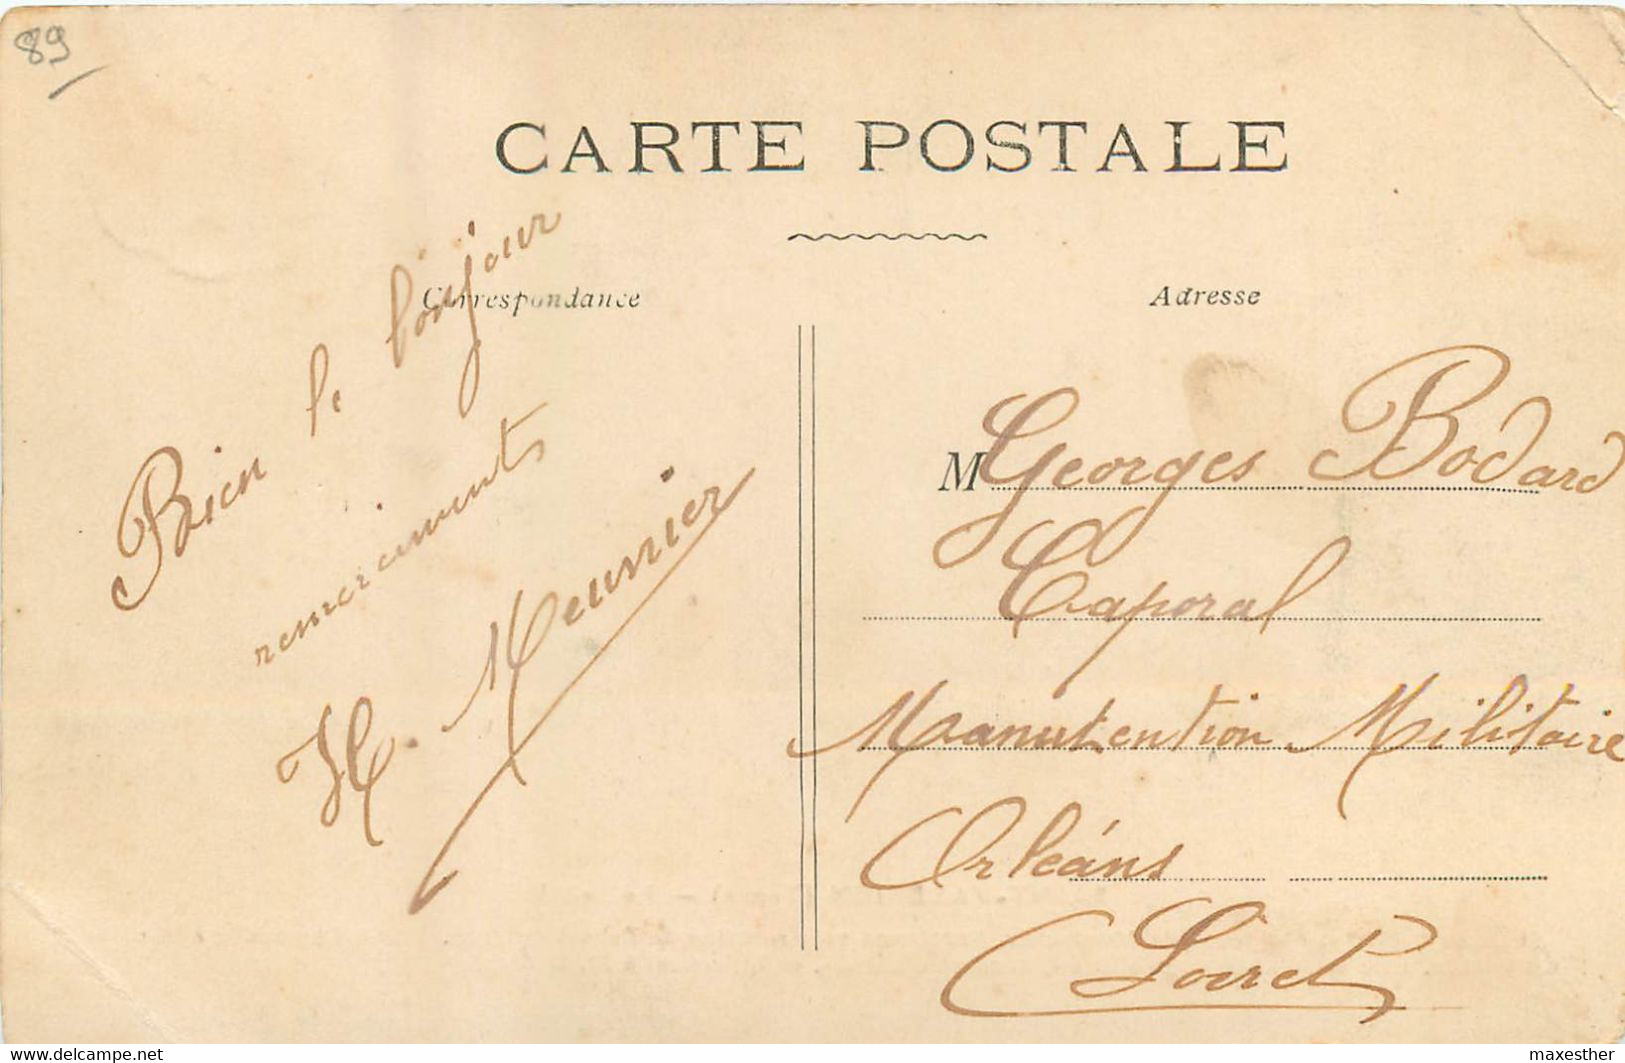 89
CARTE POSTALE
Correspondance
Bien le bonjour
remerciments
H. Meunier
Adresse
M Georges Bodard
Caporal
Manutention Militaire
Orléans
Loiret
www.delcampe.net
maxesther